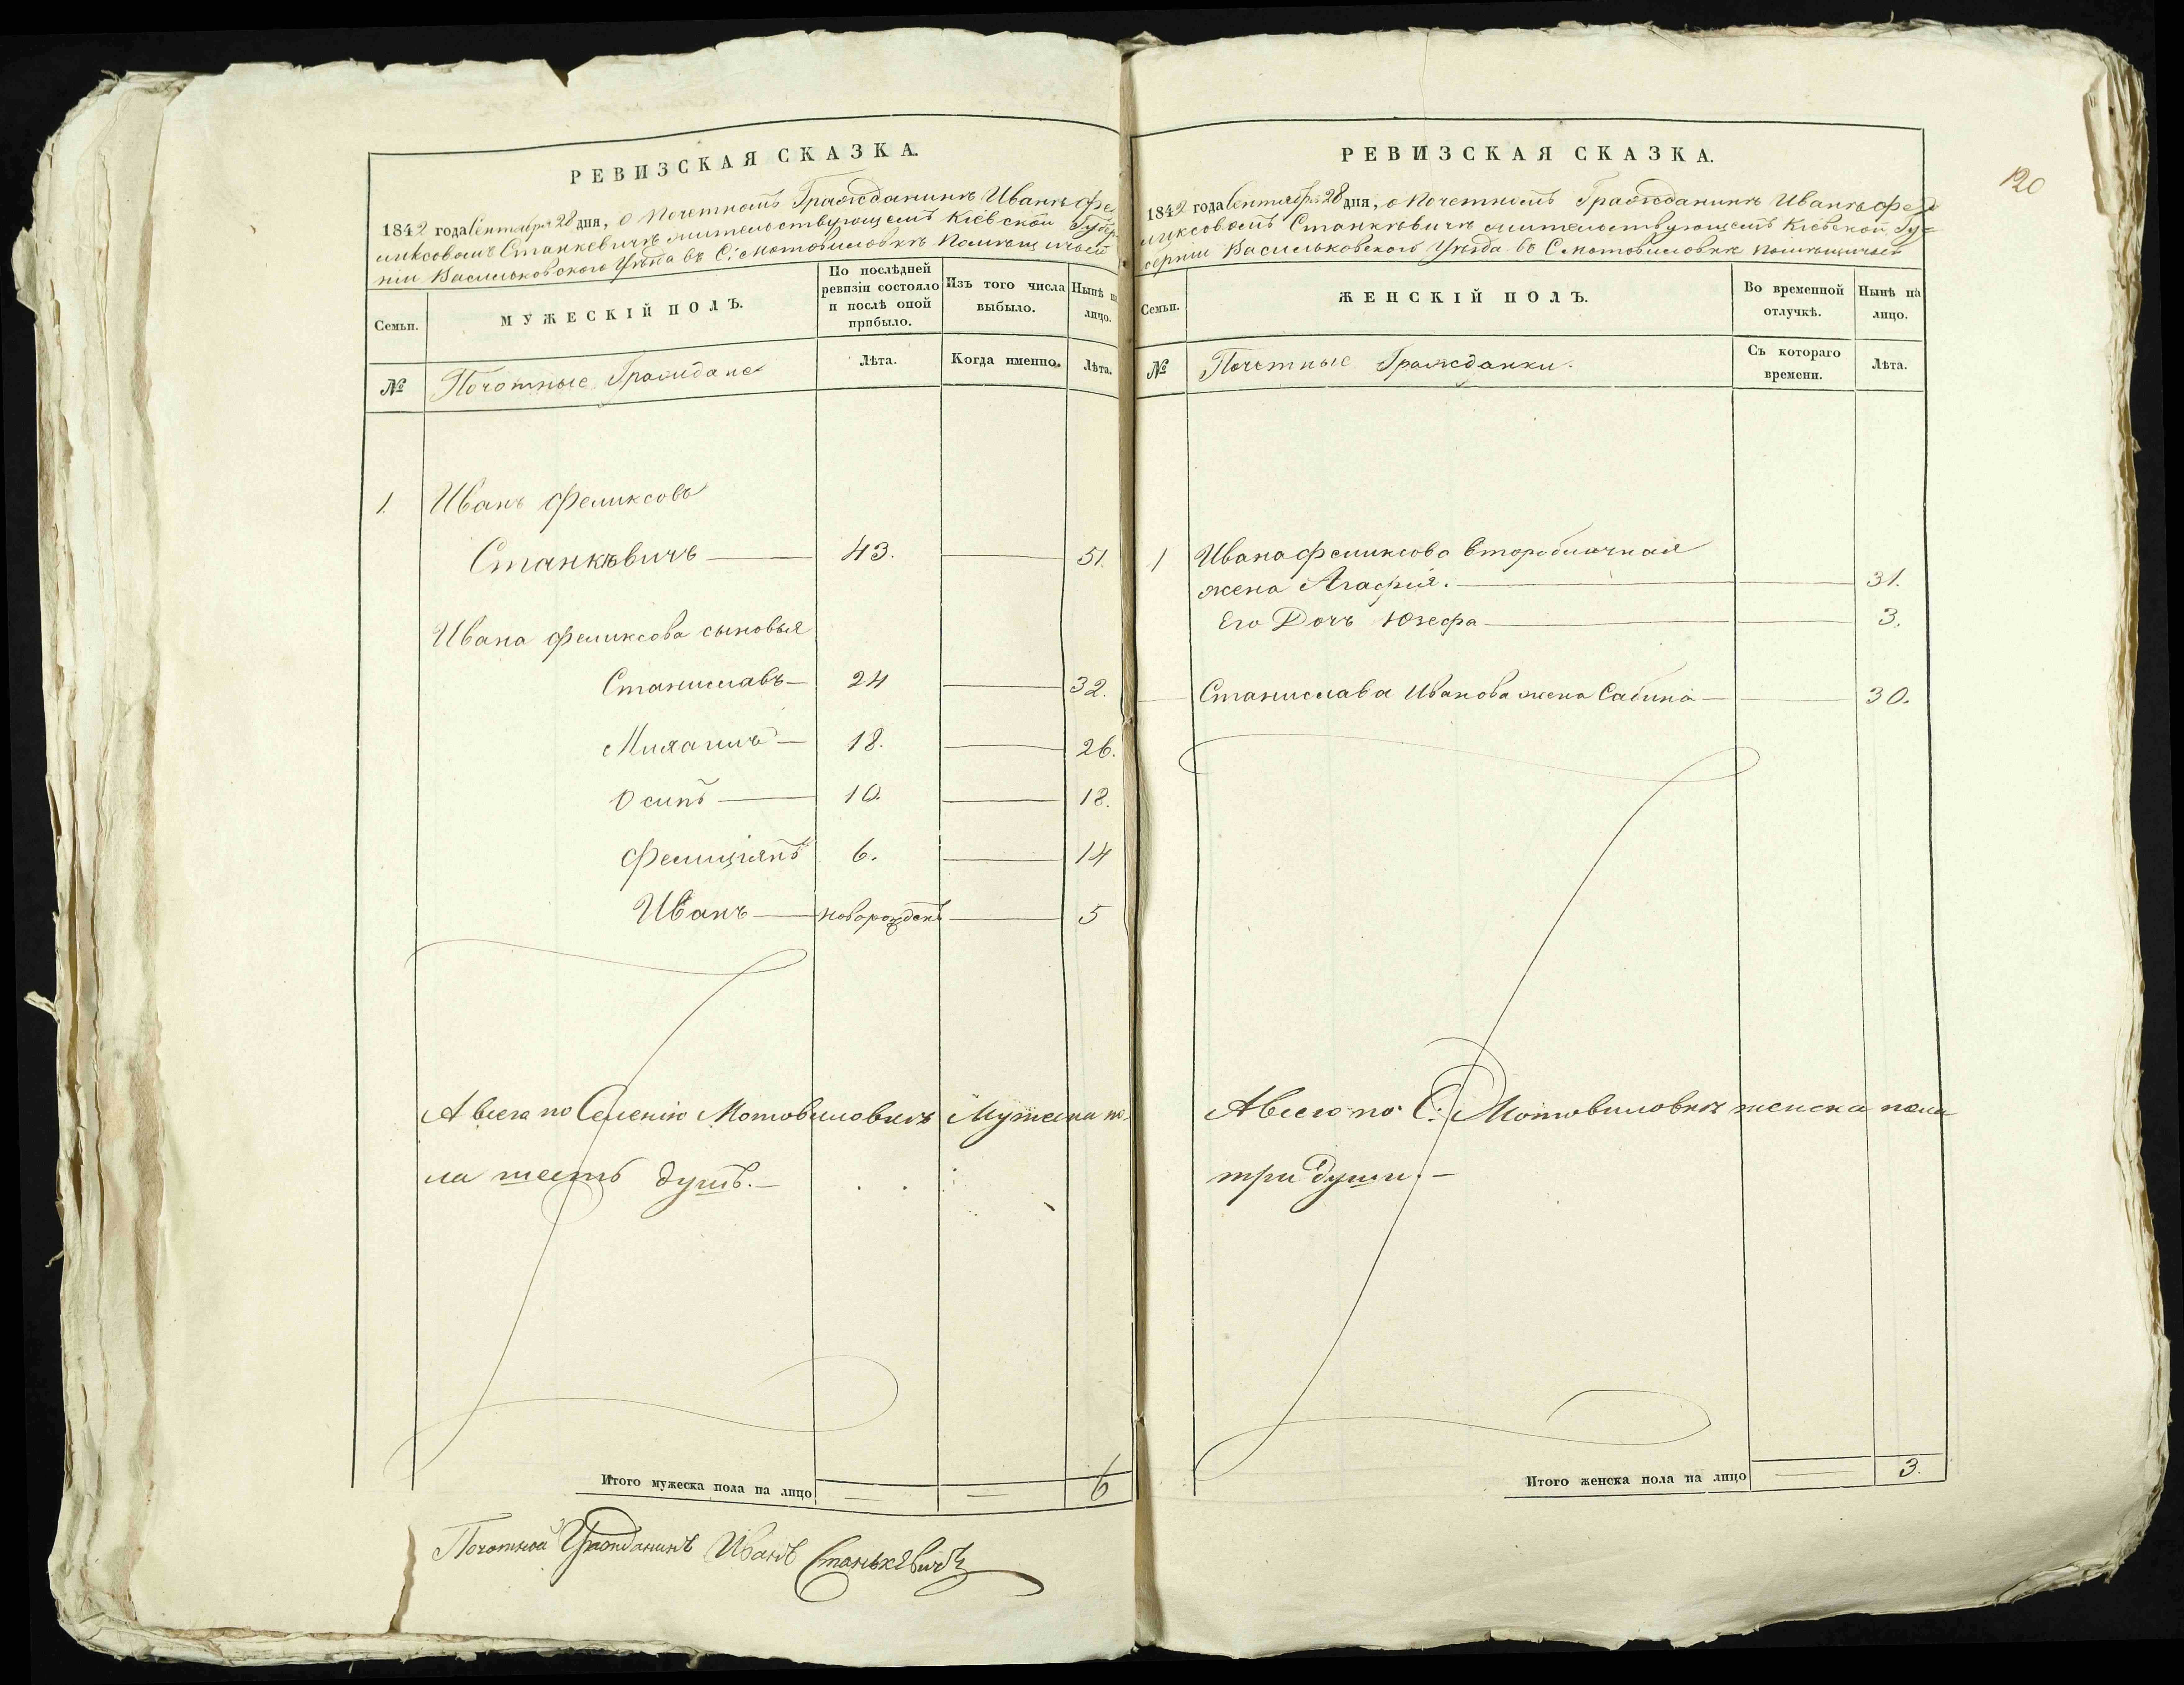 РЕВИЗСКАЯ СКАЗКА.
1842 года Сентября 28 дня, о Почетномъ Гражданинѣ Иванѣ Фе
ликсовомъ Станкевичѣ жительствующемъ Кіевской Губер
ніи Васильковского Уѣзда въ С: Мотовиловкѣ Помѣщичьей
Семьи.
МУЖЕСКІЙ ПОЛЪ.
По послѣдней ревизіи состояло и послѣ оной прибыло.
Изъ того числа выбыло.
Нынѣ на лицо.
№
Почотные Граждане
Лѣта.
Когда именно.
Лѣта.
1. Иванъ Феликсовъ
Станкѣвичъ 43. 51.
Ивана Феликсова сыновья
Станиславъ 24 32.
18. 26.
Осипъ 10. 18.
Фелиціянъ 6. 14
Иванъ новорожденъ 5
А всего по Селенію Мотовиловкѣ Мужеска по
ла шесть душъ.
Итого мужеска пола на лицо 6
Почотной Гражданинъ Иванъ Станькевичъ
120
РЕВИЗСКАЯ СКАЗКА.
1842 года Сентября 28 дня, о Почетномъ Гражданинѣ Иванѣ Фе
ликсовомъ Станкѣвичѣ жительствующемъ Кіевской Гу=
берніи Васильковского Уѣзда въ С Мотовиловкѣ помѣщичьей
Семьи.
ЖЕНСКІЙ ПОЛЪ.
Во временной отлучкѣ.
Нынѣ на лицо.
№
Почетные Гражданки.
Съ котораго времени.
Лѣта.
1 Ивана Феликсова второбрачная
жена Агафія. 31.
Его Дочъ Юзефа 3.
Станислава Иванова жена Сабина 30.
А всего по С: Мотовиловкѣ женска пола
три души.
Итого женска пола на лицо 3.